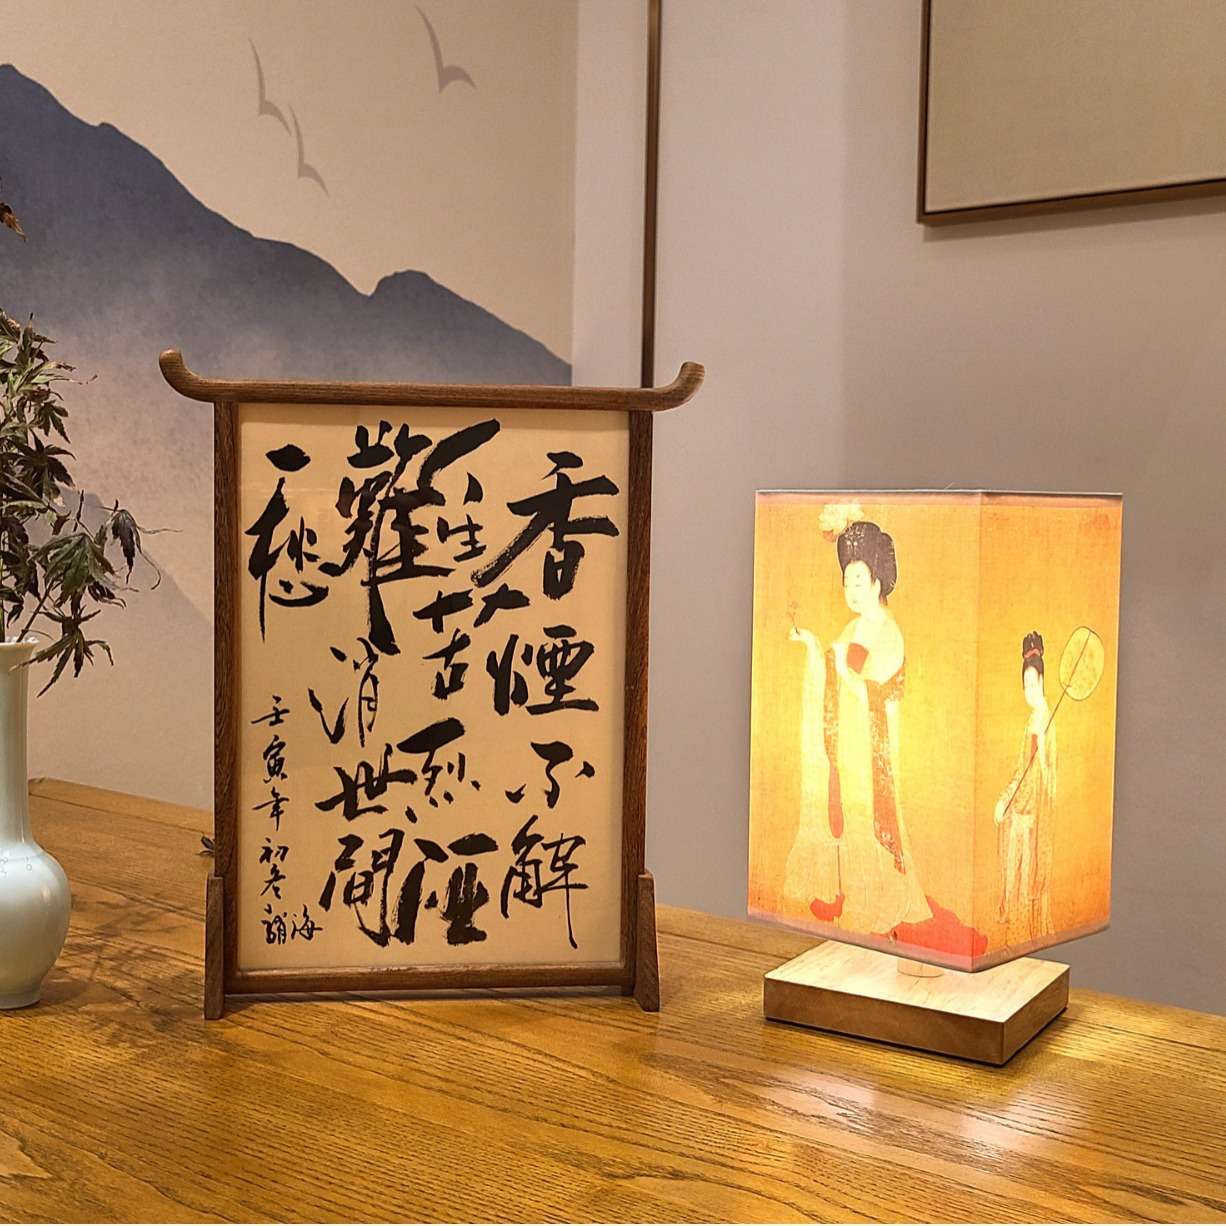 香煙不解
人生苦烈酒
難消世間
愁
壬寅年初冬
海